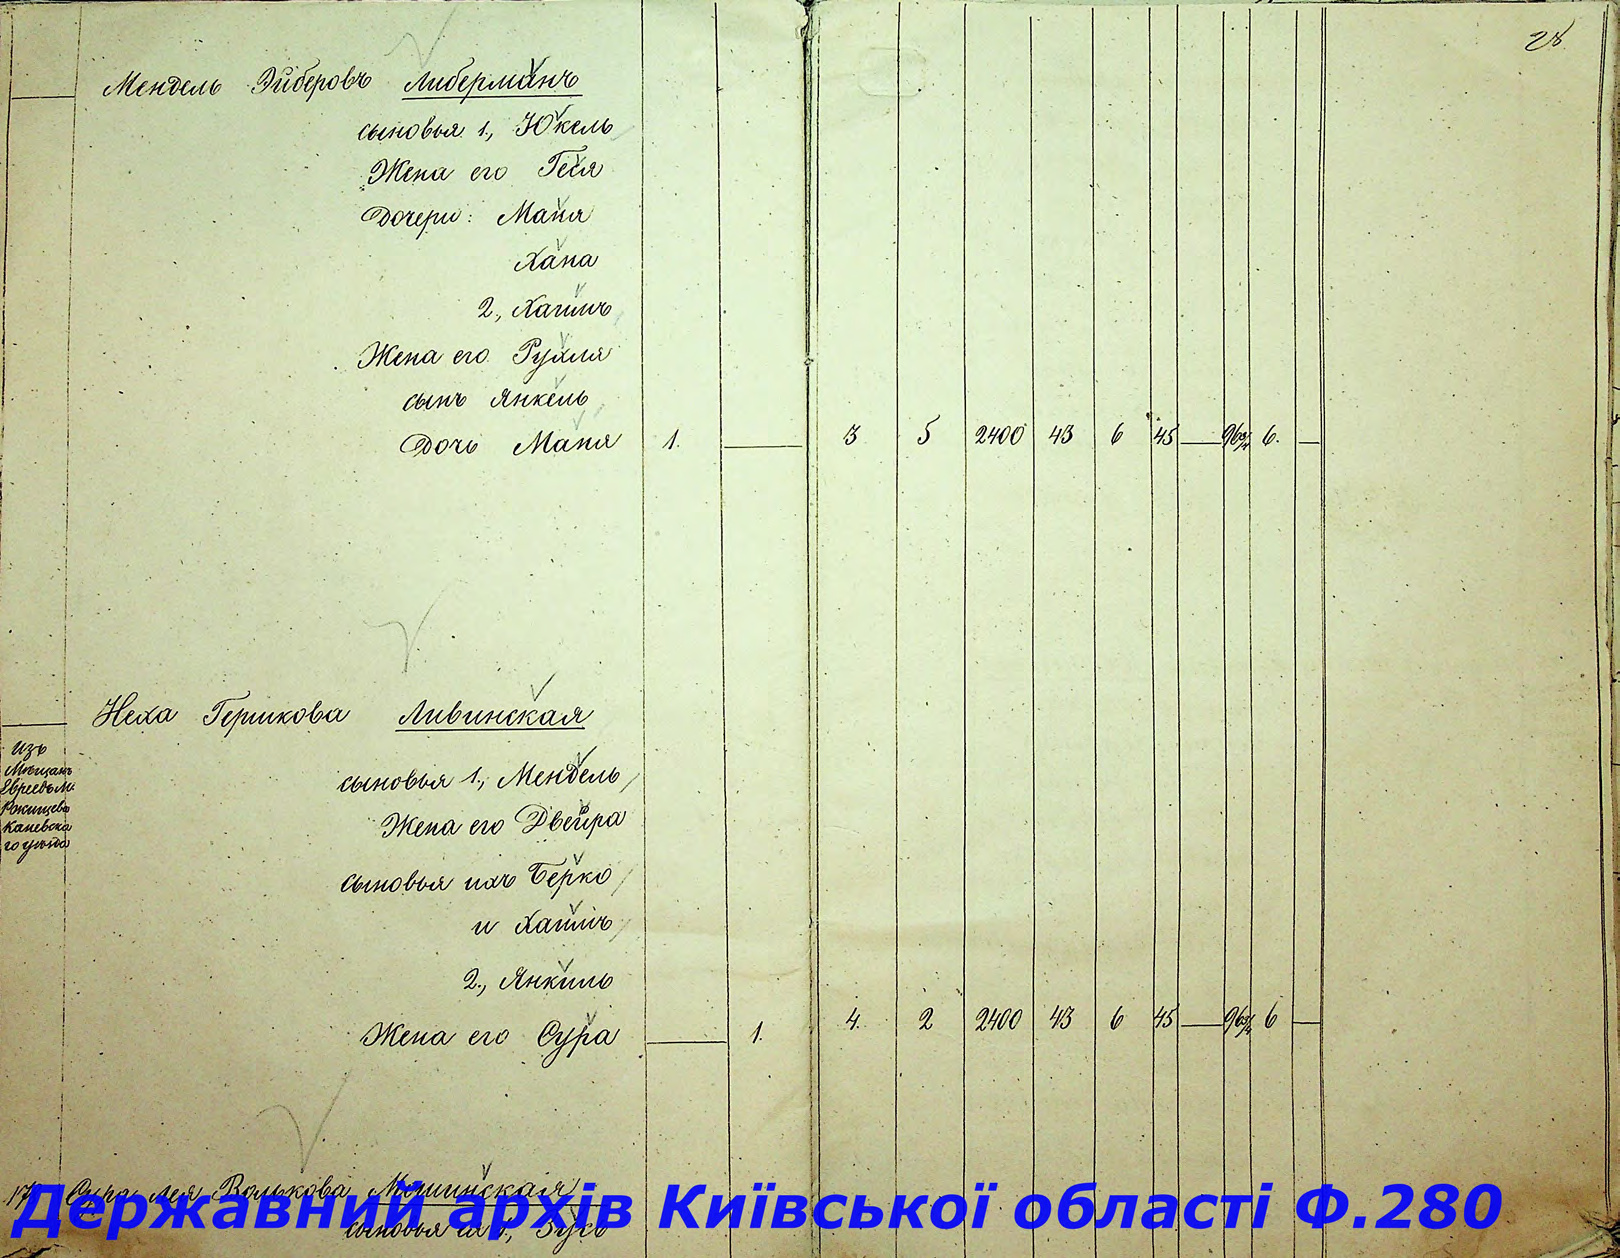 28
Мендель Эйберовъ Либерманъ
сыновья 1., Юкель
Жена его Геся
Дочери: Маня
Хана
2., Хаимъ
Жена его Рухля
сынъ Янкель
Дочь Маня 1. 3 5 2400 43 6 45 96 6.
Неха Гершкова Ливинская
изъ
Мещанъ
Евреевъ м.
Ржищева
Каневска
го уѣзда
сыновья 1., Мендель
Жена его Двейра
сыновья ихъ Берко
и Хаимъ
2., Янкель
Жена его Сура 1. 4. 2 2400 43 6 45 96 6
17 Сура Лея Волькова
сыновья ея 1., Зусь
Державний архів Київської області Ф.280